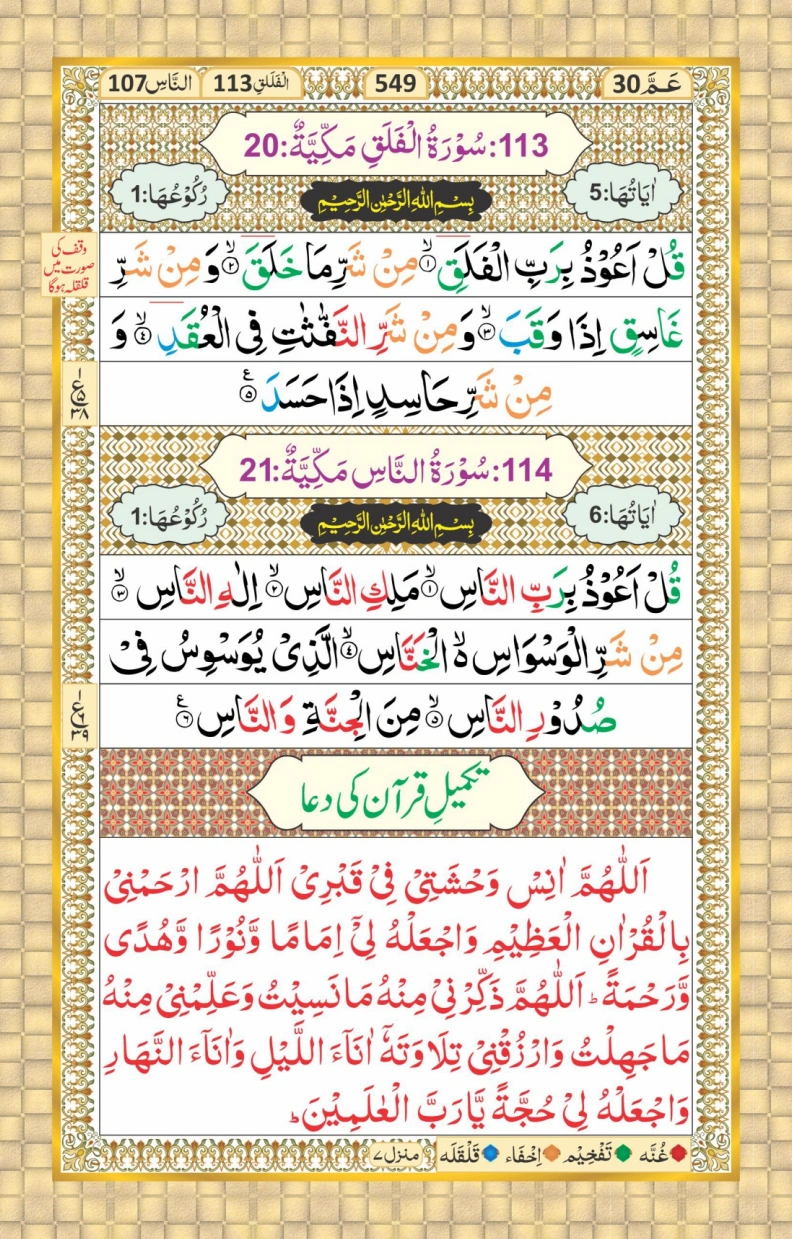 عَـمَّ 30
549
الْفَلَقِ 113
النَّاس 107
113:سُوْرَةُ الْفَلَقِ مَكِّيَّةٌ:20
اٰيَاتُهَا:5
بِسْمِ اللّٰهِ الرَّحْمٰنِ الرَّحِيْمِ
رُكُوْعُهَا:1
قُلْ اَعُوْذُ بِرَبِّ الْفَلَقِ ۙ﴿۱﴾ مِنْ شَرِّ مَا خَلَقَ ۙ﴿۲﴾ وَ مِنْ شَرِّ
وقف کی
صورت میں
قلقلہ ہوگا
غَاسِقٍ اِذَا وَقَبَ ۙ﴿۳﴾ وَ مِنْ شَرِّ النَّفّٰثٰتِ فِی الْعُقَدِ ۙ﴿۴﴾ وَ
مِنْ شَرِّ حَاسِدٍ اِذَا حَسَدَ ﴿۵﴾ ع
۱
ع۵
۳۸
114:سُوْرَةُ النَّاسِ مَكِّيَّةٌ:21
اٰيَاتُهَا:6
بِسْمِ اللّٰهِ الرَّحْمٰنِ الرَّحِيْمِ
رُكُوْعُهَا:1
قُلْ اَعُوْذُ بِرَبِّ النَّاسِ ۙ﴿۱﴾ مَلِكِ النَّاسِ ۙ﴿۲﴾ اِلٰهِ النَّاسِ ۙ﴿۳﴾
مِنْ شَرِّ الْوَسْوَاسِ ۙ۬ الْخَنَّاسِ ۙ﴿۴﴾ الَّذِیْ یُوَسْوِسُ فِیْ
صُدُوْرِ النَّاسِ ۙ﴿۵﴾ مِنَ الْجِنَّةِ وَ النَّاسِ ﴿۶﴾ ع
۱
ع۶
۳۹
تکمیلِ قرآن کی دعا
اَللّٰهُمَّ اٰنِسْ وَحْشَتِیْ فِیْ قَبْرِیْ اَللّٰهُمَّ ارْحَمْنِیْ
بِالْقُرْاٰنِ الْعَظِیْمِ وَاجْعَلْهُ لِیْٓ اِمَامًا وَّنُوْرًا وَّهُدًی
وَّرَحْمَةً ؕ اَللّٰهُمَّ ذَكِّرْنِیْ مِنْهُ مَا نَسِیْتُ وَعَلِّمْنِیْ مِنْهُ
مَا جَهِلْتُ وَارْزُقْنِیْ تِلَاوَتَهٗٓ اٰنَآءَ اللَّیْلِ وَاٰنَآءَ النَّهَارِ
وَاجْعَلْهُ لِیْ حُجَّةً یَّارَبَّ الْعٰلَمِیْنَ ؕ
غُنَّه تَفْخِيْم اِخْفَاء قَلْقَلَه منزل ۷